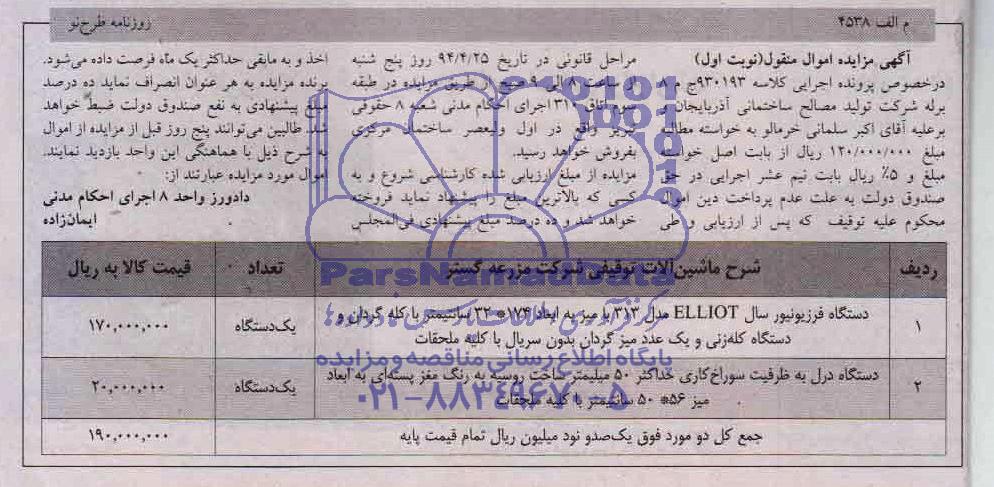 م الف ۴۵۳۸
روزنامه طرح‌نو
آگهی مزایده اموال منقول(نوبت اول)
درخصوص پرونده اجرایی کلاسه ۹۳۰۱۹۳ج م
برله شرکت تولید مصالح ساختمانی آذربایجان
برعلیه آقای اکبر سلمانی خرمالو به خواسته مطالبه
مبلغ ۱۲۰/۰۰۰/۰۰۰ ریال از بابت اصل خواسته
مبلغ و ۵٪ ریال بابت نیم عشر اجرایی در حق
صندوق دولت به علت عدم پرداخت دین اموال
محکوم علیه توقیف که پس از ارزیابی و طی
مراحل قانونی در تاریخ ۹۴/۴/۲۵ روز پنج شنبه
از ساعت ۸ الی ۹ صبح از طریق مزایده در طبقه
سوم اتاق ۳۱۰ اجرای احکام مدنی شعبه ۸ حقوقی
تبریز واقع در اول ولیعصر ساختمان مرکزی
بفروش خواهد رسید.
مزایده از مبلغ ارزیابی شده کارشناسی شروع و به
کسی که بالاترین مبلغ را پیشنهاد نماید فروخته
خواهد شد و ده درصد مبلغ پیشنهادی فی‌المجلس
اخذ و به مابقی حداکثر یک ماه فرصت داده می‌شود.
برنده مزایده به هر عنوان انصراف نماید ده درصد
مبلغ پیشنهادی به نفع صندوق دولت ضبط خواهد
شد. طالبین می‌توانند پنج روز قبل از مزایده از اموال
به شرح ذیل با هماهنگی این واحد بازدید نمایند.
اموال مورد مزایده عبارتند از:
دادورز واحد ۸ اجرای احکام مدنی
ایمان‌زاده
ردیف شرح ماشین‌آلات توقیفی شرکت مزرعه گستر تعداد قیمت کالا به ریال
۱ دستگاه فرزیونیور سال ELLIOT مدل ۳۱۳ با میز به ابعاد ۱۷۴*۳۲ سانتیمتر با کله گردان و یک‌دستگاه ۱۷۰,۰۰۰,۰۰۰
دستگاه کله‌زنی و یک عدد میز گردان بدون سریال با کلیه ملحقات
۲ دستگاه درل به ظرفیت سوراخ‌کاری حداکثر ۵۰ میلیمتر ساخت روسیه به رنگ مغز پسته‌ای به ابعاد یک‌دستگاه ۲۰,۰۰۰,۰۰۰
میز ۵۶*۵۰ سانتیمتر با کلیه ملحقات
جمع کل دو مورد فوق یک‌صدو نود میلیون ریال تمام قیمت پایه ۱۹۰,۰۰۰,۰۰۰
ParsNamadData
پایگاه اطلاع رسانی مناقصه و مزایده
۰۲۱-۸۸۳۴۹۶۷۰-۵